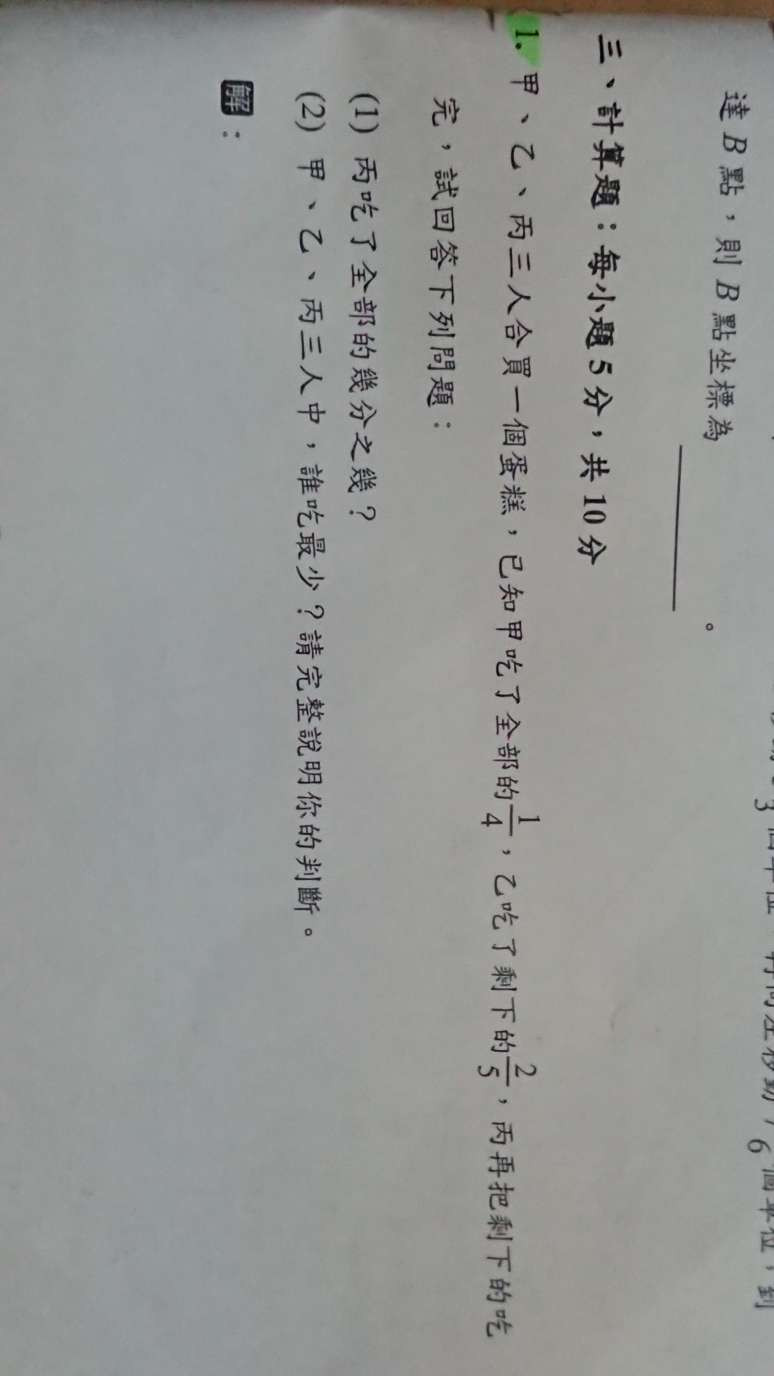 3
6
達 B 點，則 B 點坐標為＿＿＿＿。
三、計算題：每小題 5 分，共 10 分
1. 甲、乙、丙三人合買一個蛋糕，已知甲吃了全部的 1/4，乙吃了剩下的 2/5，丙再把剩下的吃
完，試回答下列問題：
(1) 丙吃了全部的幾分之幾？
(2) 甲、乙、丙三人中，誰吃最少？請完整說明你的判斷。
解：